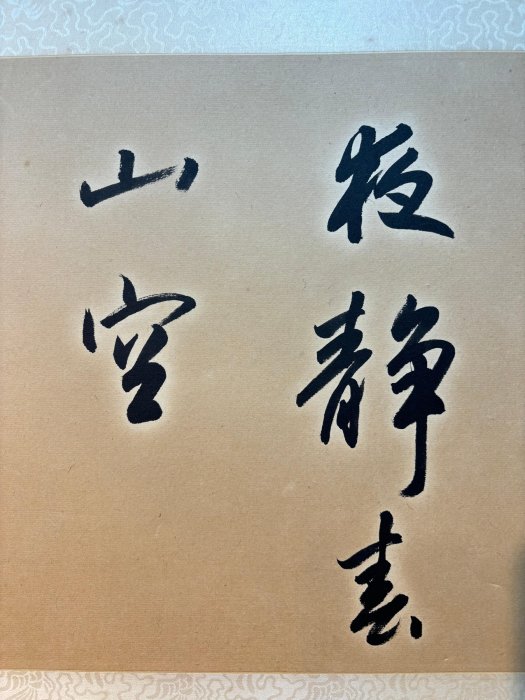 夜静春
山空